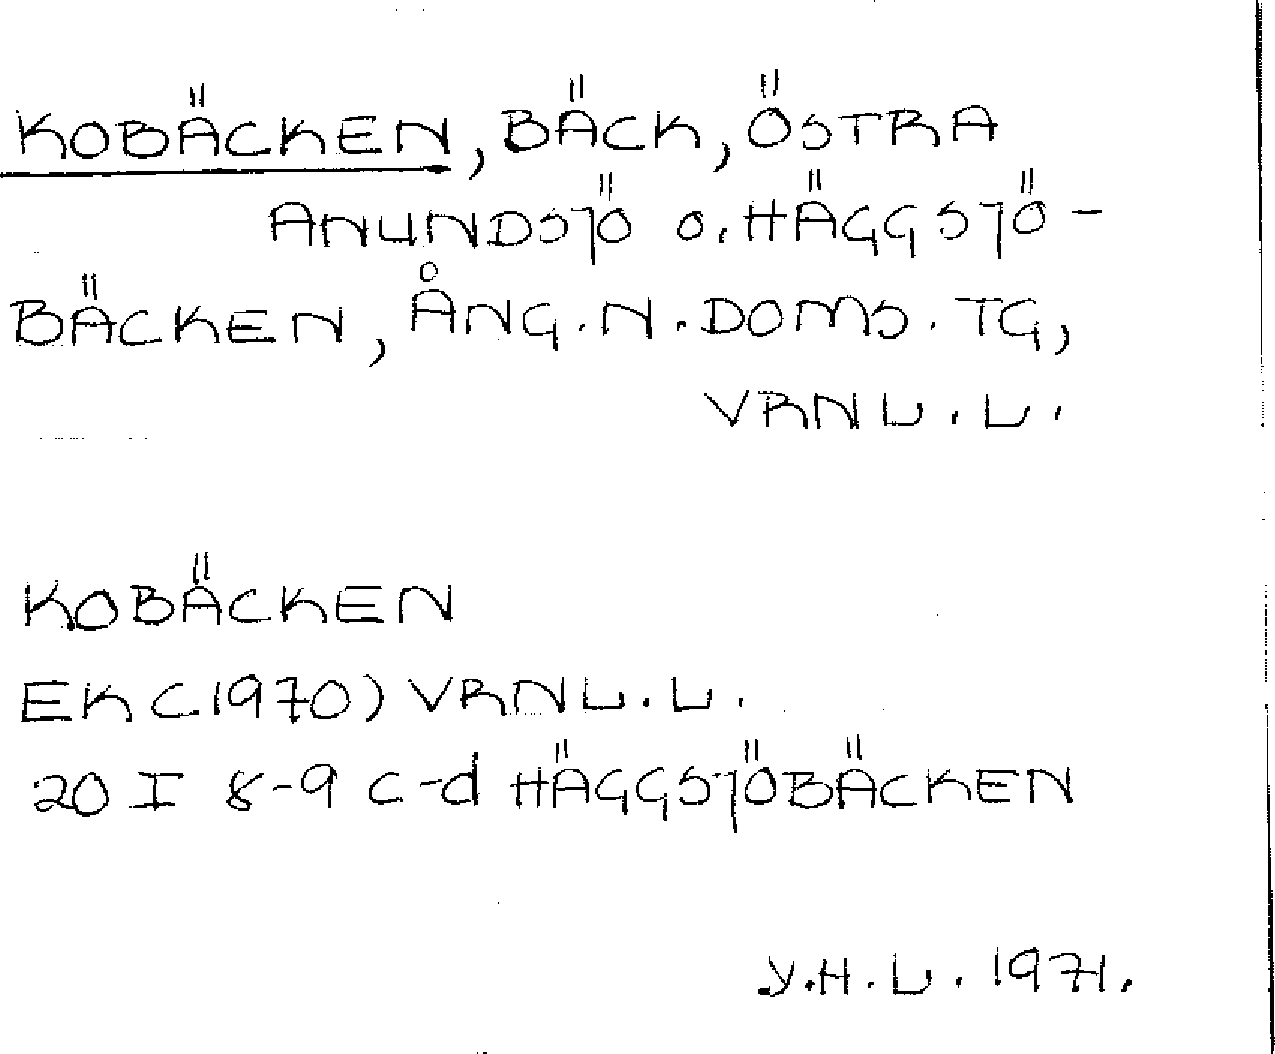 KOBÄCKEN, BÄCK, ÖSTRA
ANUNDSJÖ o. HÄGGSJÖ-
BÄCKEN, ÅNG. N. DOMS. TG,
VRNL. L.
KOBÄCKEN
EK (1970) VRNL. L.
20 I 8-9 c-d HÄGGSJÖBÄCKEN
Y.H.L. 1971.